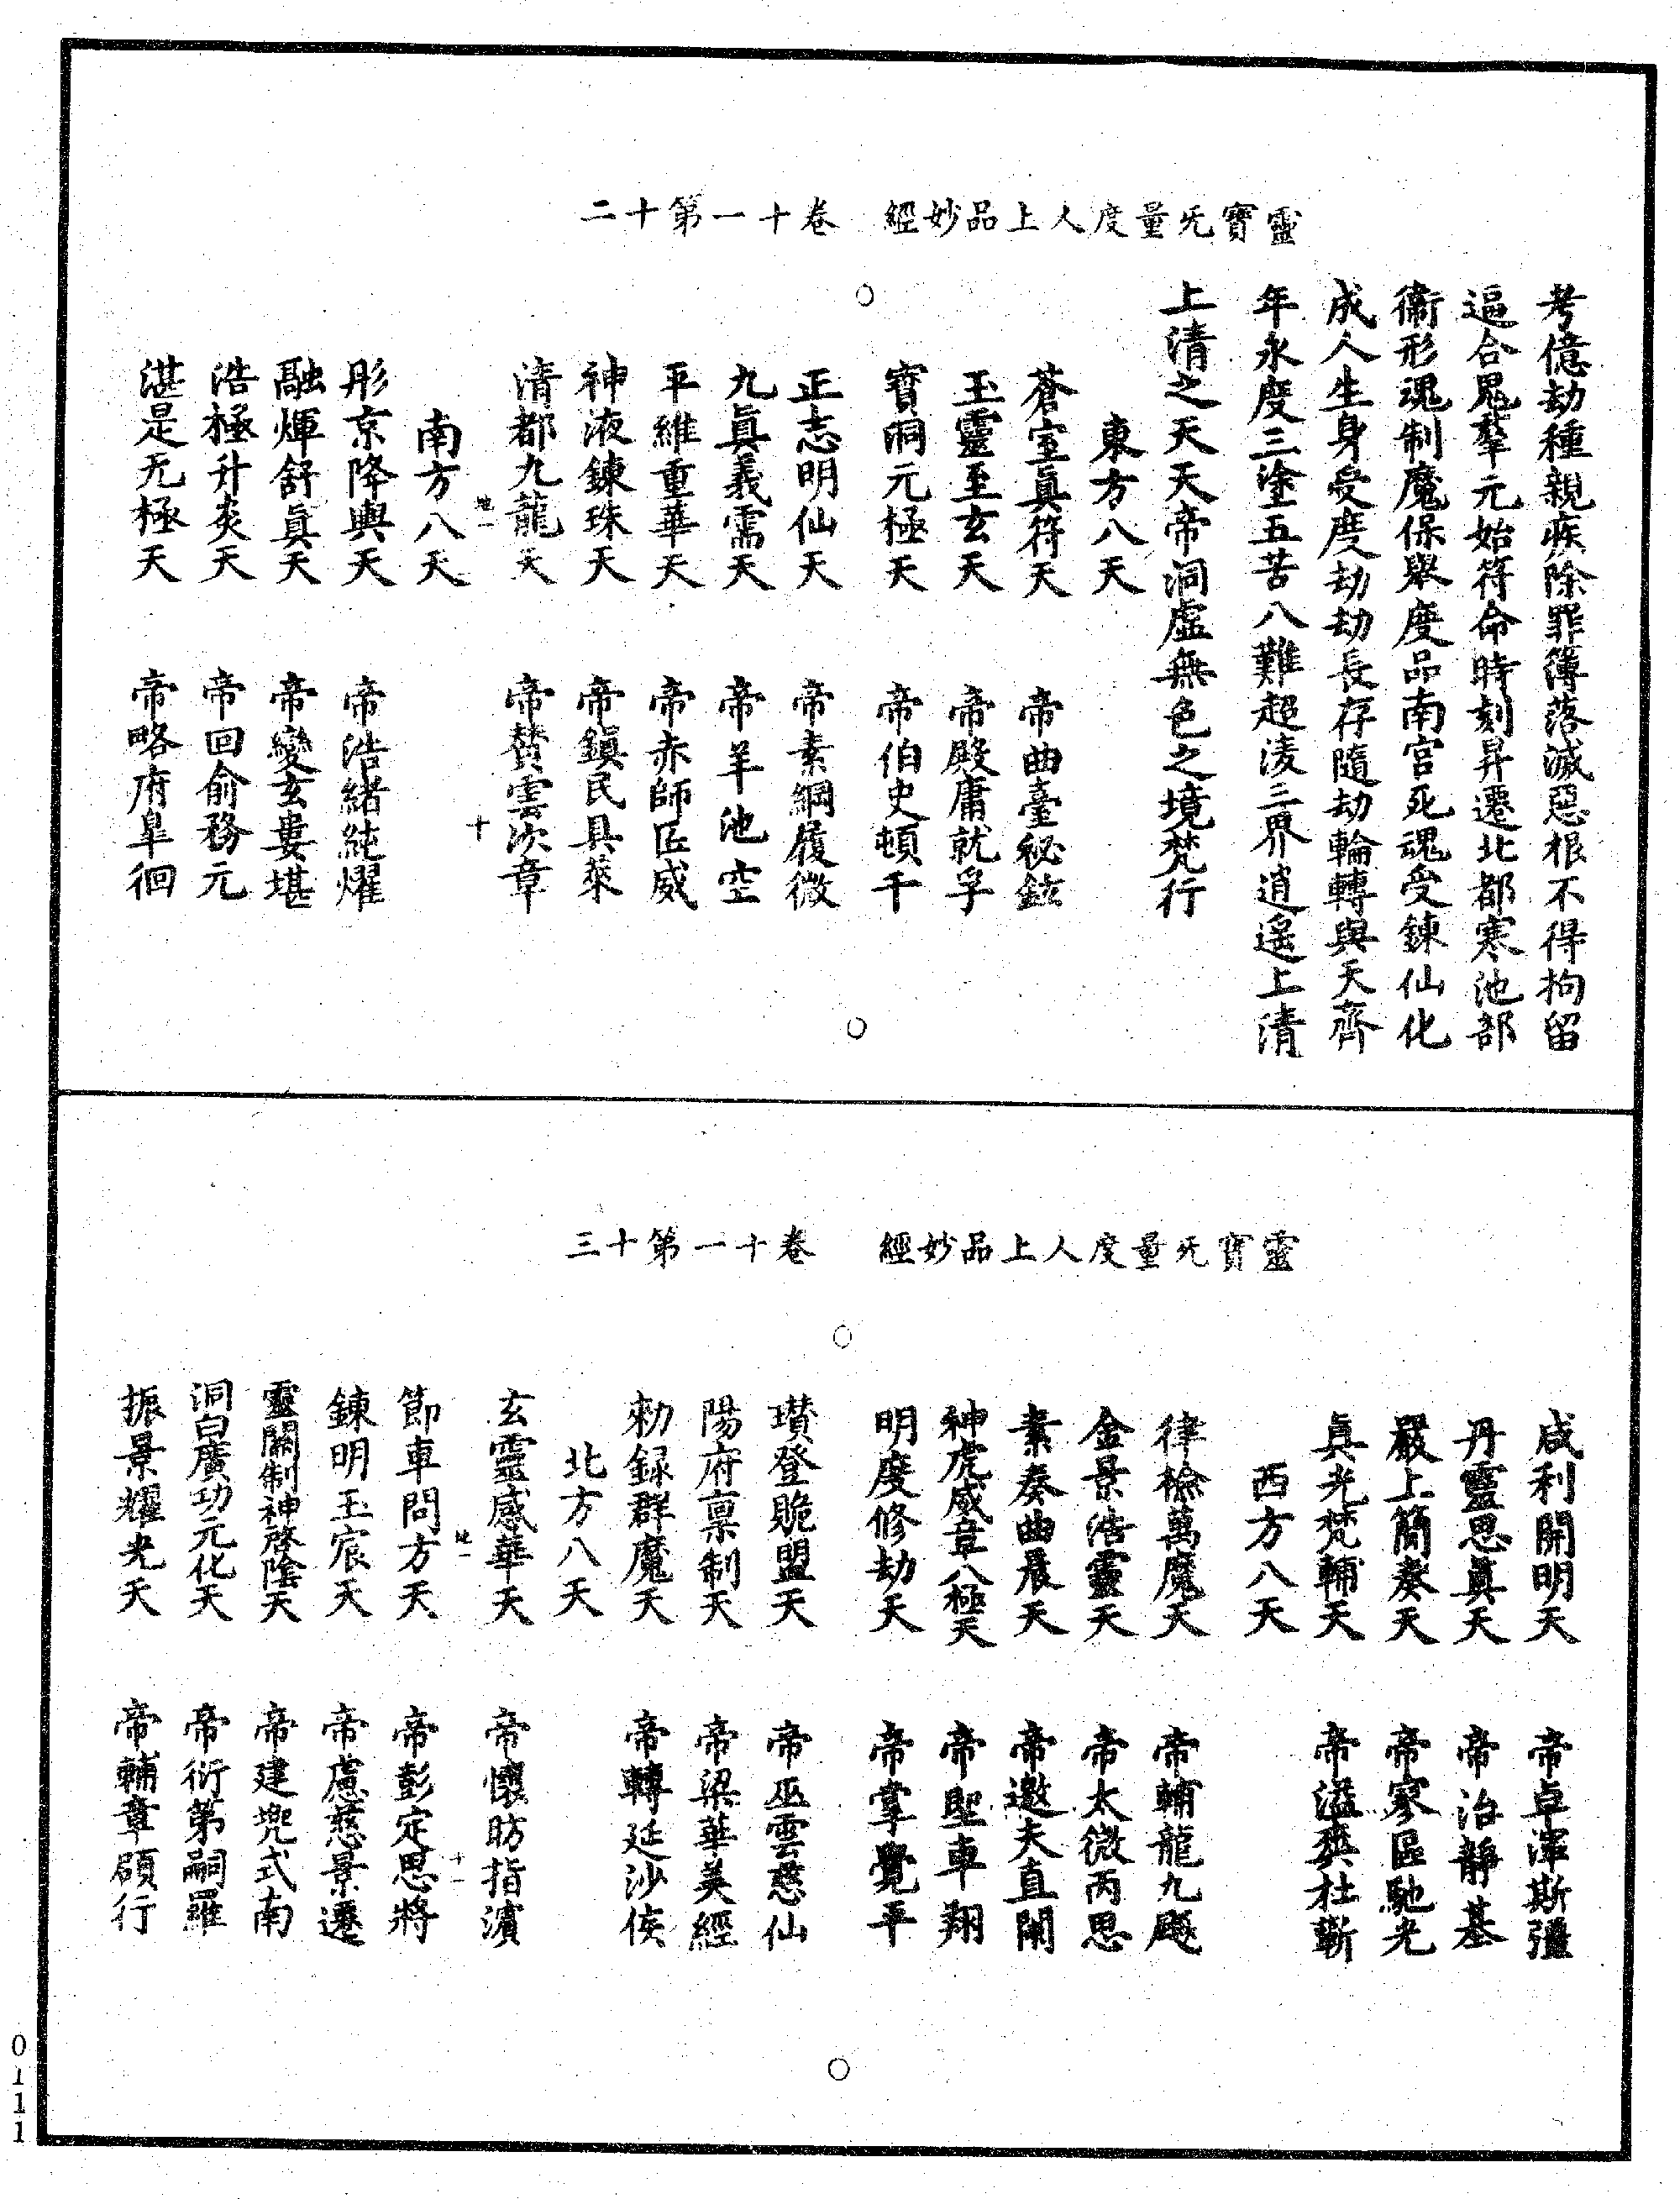 靈寶无量度人上品妙經　卷十一第十二
考億劫種親疾除罪簿落滅惡根不得拘留
逼合鬼羣元始符命時刻昇遷北都寒池部
衞形魂制魔保舉度品南宮死魂受鍊仙化
成人生身受度劫劫長存隨劫輪轉與天齊
年永度三塗五苦八難超淩三界逍遙上清
上清之天天帝洞虛無色之境梵行
東方八天
蒼室真符天　帝曲臺祕鉉
玉靈至玄天　帝殿庸就孚
寶洞元極天　帝伯史頓千
正志明仙天　帝素綱履微
九真義需天　帝羊池空
平維重華天　帝赤師匠威
神液鍊珠天　帝鎮民具萊
清都九龍天　帝贊雲次章
地一　十
南方八天
彤京降輿天　帝浩緒純燿
融煇舒真天　帝變玄婁堪
浩極升炎天　帝回俞務元
湛是无極天　帝略府臯徊
靈寶无量度人上品妙經　卷十一第十三
咸利開明天　帝卓渾斯彊
丹靈思真天　帝治靜基
嚴上簡奏天　帝寥區馳光
真光梵輔天　帝溢奭杜蘄
西方八天
律檢萬魔天　帝輔龍九飈
金景浩靈天　帝太微丙思
素奏曲晨天　帝邀夫直闌
神虎威章八極天　帝聖車翔
明度修劫天　帝掌覺平
瓚登賧盟天　帝巫雲慈仙
陽府稟制天　帝梁華美經
勑録群魔天　帝轉延沙侯
北方八天
玄靈感華天　帝懷昉指濱
地一　十一
節車問方天　帝彭定思將
鍊明玉宸天　帝慮慈景遷
靈關制神啓陰天　帝建兜式南
洞白廣功元化天　帝衍第嗣羅
振景耀光天　帝輔章頋行
0111